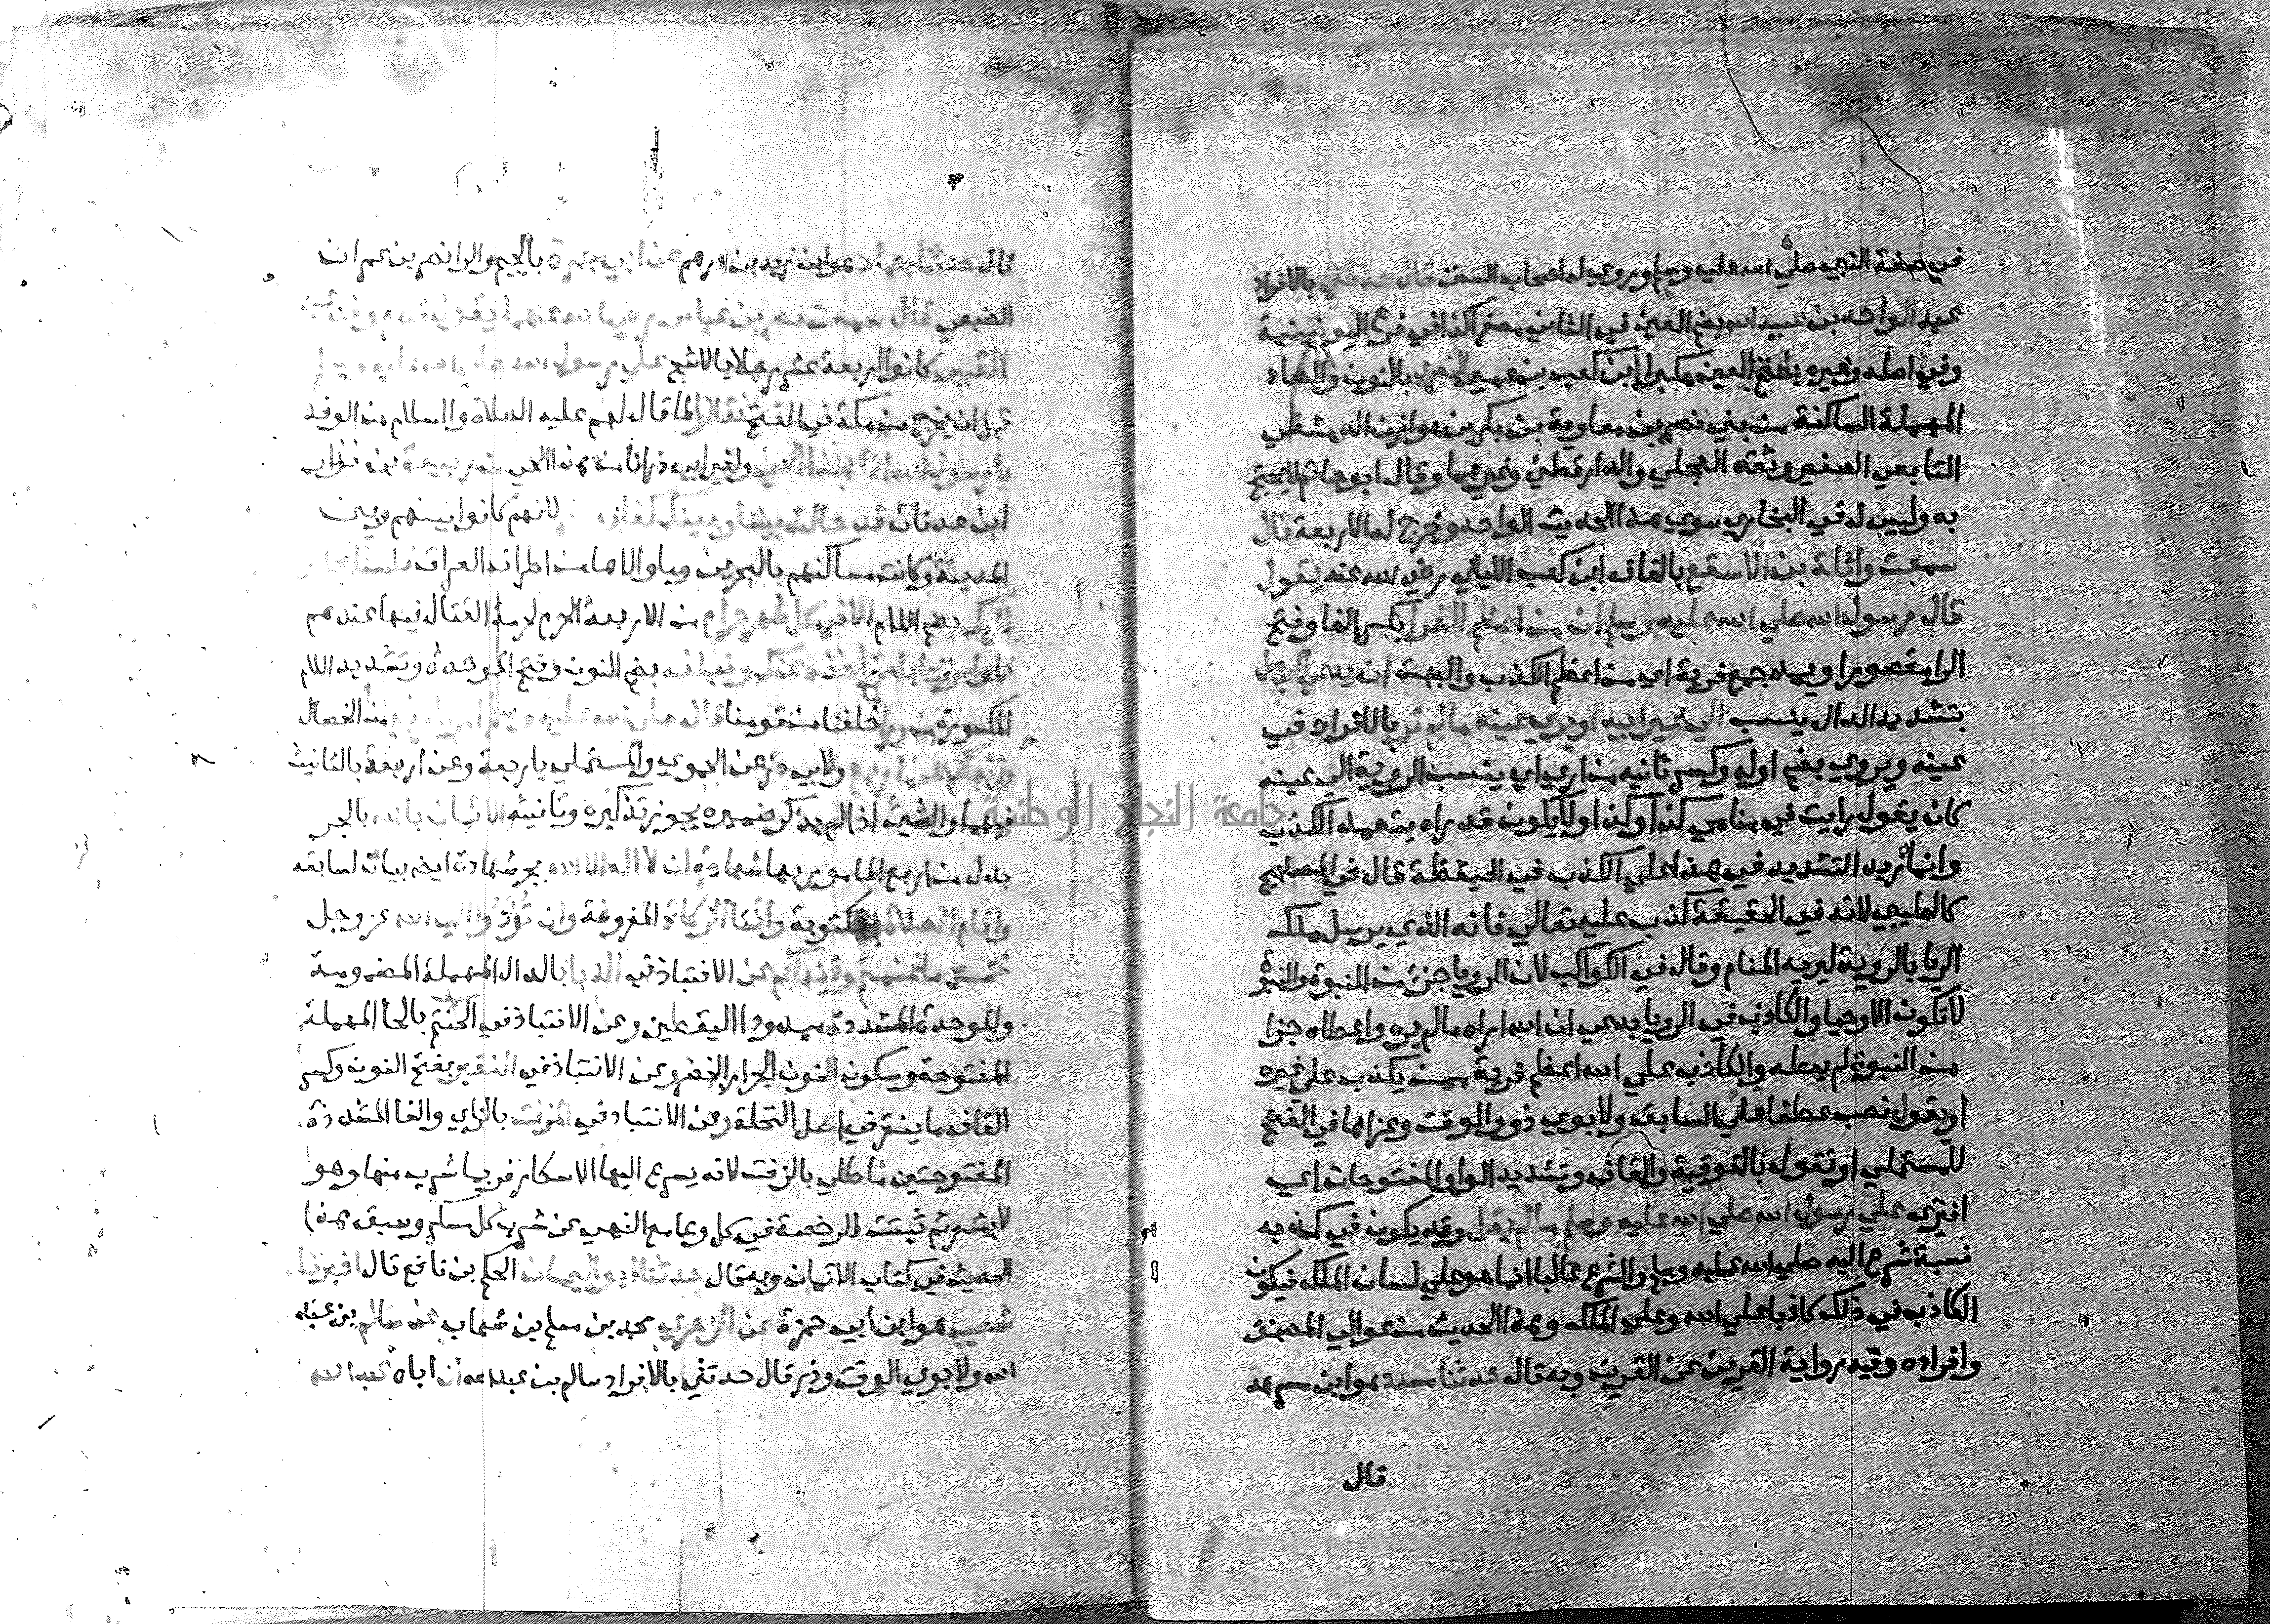 في صفة النبي صلي الله عليه وسلم وروي له اصحاب السنن قال حدثني بالافراد
عبد الواحد بن عبيد الله بضم العين في الثاني مصغرا كذا في فرع اليونينية
وفي اصله وغيره بفتح العين مكبرا ابن كعب بن عمير النصري بالنون والصاد
المهملة الساكنة من بني نصر بن معاوية بن بكر بن هوازن الدمشقي
التابعي الصغير وثقه العجلي والدارقطني وغيرهما وقال ابو حاتم لا يحتج
به وليس له في البخاري سوي هذا الحديث الواحد وخرج له الاربعة قال
سمعت واثلة بن الاسقع بالقاف ابن كعب الليثي رضي الله عنه يقول
قال رسول الله صلي الله عليه وسلم ان من اعظم الفرا بكسر الفا وفتح
الرا مقصورا ويمد جمع فرية اي من اعظم الكذب والبهت ان يدعي الرجل
بتشديد الدال ينسب الي غير ابيه او يري عينه مالم تر بالافراد في
عينه ويروي بضم اوله وكسر ثانيه من اري اي ينسب الروية الي عينه
كان يقول رايت في منامي كذا وكذا ولا يكون قد راه يتعمد الكذب
وانما زيد التشديد في هذا علي الكذب في اليقظة قال في المصابيح
كالطيبي لانه في الحقيقة كذب عليه تعالي فانه الذي يرسل ملك
الرويا بالروية ليريه المنام وقال في الكواكب لان الرويا جزء من النبوة والنبوة
لا تكون الا وحيا والكاذب في الرويا يدعي ان الله اراه مالم يره واعطاه جزا
من النبوة لم يعطه والكاذب علي الله اعظم فرية ممن يكذب علي غيره
او يقول نصب عطفا علي السابق ولابوي ذر والوقت وعزاها في الفتح
للمستملي او تقول بالفوقية والقاف وتشديد الواو المفتوحات اي
افترى علي رسول الله صلي الله عليه وسلم مالم يقل وقد يكون في كذبه
نسبة شرع اليه صلي الله عليه وسلم والشرع غالبا انما هو علي لسان الملك فيكون
الكاذب في ذلك كاذبا علي الله وعلي الملك وهذا الحديث من عوالي المصنف
وافراده وفيه رواية القرين عن القرين وبه قال حدثنا مسدد هو ابن مسرهد
قال
قال حدثنا حماد هو ابن زيد بن درهم عن ابي جمرة بالجيم والرا نصر بن عمران
الضبعي قال سمعت ابن عباس رضي الله عنهما يقول قدم وفد عبد
القيس كانوا اربعة عشر رجلا بالاشج علي رسول الله صلي الله عليه وسلم
قبل ان يخرج من مكة في الفتح فقالوا لما قال لهم عليه الصلاة والسلام من الوفد
يا رسول الله انا هذا الحي ولغير ابي ذر انا من هذا الحي من ربيعة بن نزار
ابن عدنان قد حالت بيننا وبينك كفار لانهم كانوا بينهم وبين
المدينة وكانت مساكنهم بالبحرين وما والاها من اطراف العراق فلسنا نخلص
اليك بضم اللام الا في كل شهر حرام من الاربعة الحرم لحرمة القتال فيها عندهم
فلو امرتنا بامر ناخذه عنك ونبلغه بضم النون وفتح الموحدة وتشديد اللام
المكسورة من ورانا خلفنا من قومنا قال من الخصال
وانهاكم عن اربع ولابي ذر عن الحموي والمستملي باربعة وعن اربعة بالتانيث
فيهما والشيء اذا لم يذكر ضميره يجوز تذكيره وتانيثه الايمان بالله بالجر
بدل من اربع المامور بها شهادة ان لا اله الا الله بجر شهادة ايضا بيان لسابقه
واقام الصلاة المكتوبة وايتا الزكاة المفروضة وان تؤدوا الي الله عز وجل
خمس ما غنمتم وانهاكم عن الانتباذ في الدبا بالدال المهملة المضمومة
والموحدة المشددة ممدودا اليقطين وعن الانتباذ في الحنتم بالحا المهملة
المفتوحة وسكون النون الجرار الخضر وعن الانتباذ في النقير بفتح النون وكسر
القاف ما ينقر في اصل النخلة وعن الانتباذ في المزفت بالزاي والفا المشددة
المفتوحتين ما طلي بالزفت لانه يسرع اليها الاسكار فربما شرب منها وهو
لا يشعر ثم ثبتت الرخصة في كل وعا مع النهي عن شرب كل مسكر وسبق هذا
الحديث في كتاب الايمان وبه قال حدثنا ابو اليمان الحكم بن نافع قال اخبرنا
شعيب هو ابن ابي حمزة عن الزهري محمد بن مسلم بن شهاب عن سالم بن عبد
الله ولابوي الوقت وذر قال حدثني بالافراد سالم بن عبد الله ان اباه عبد الله